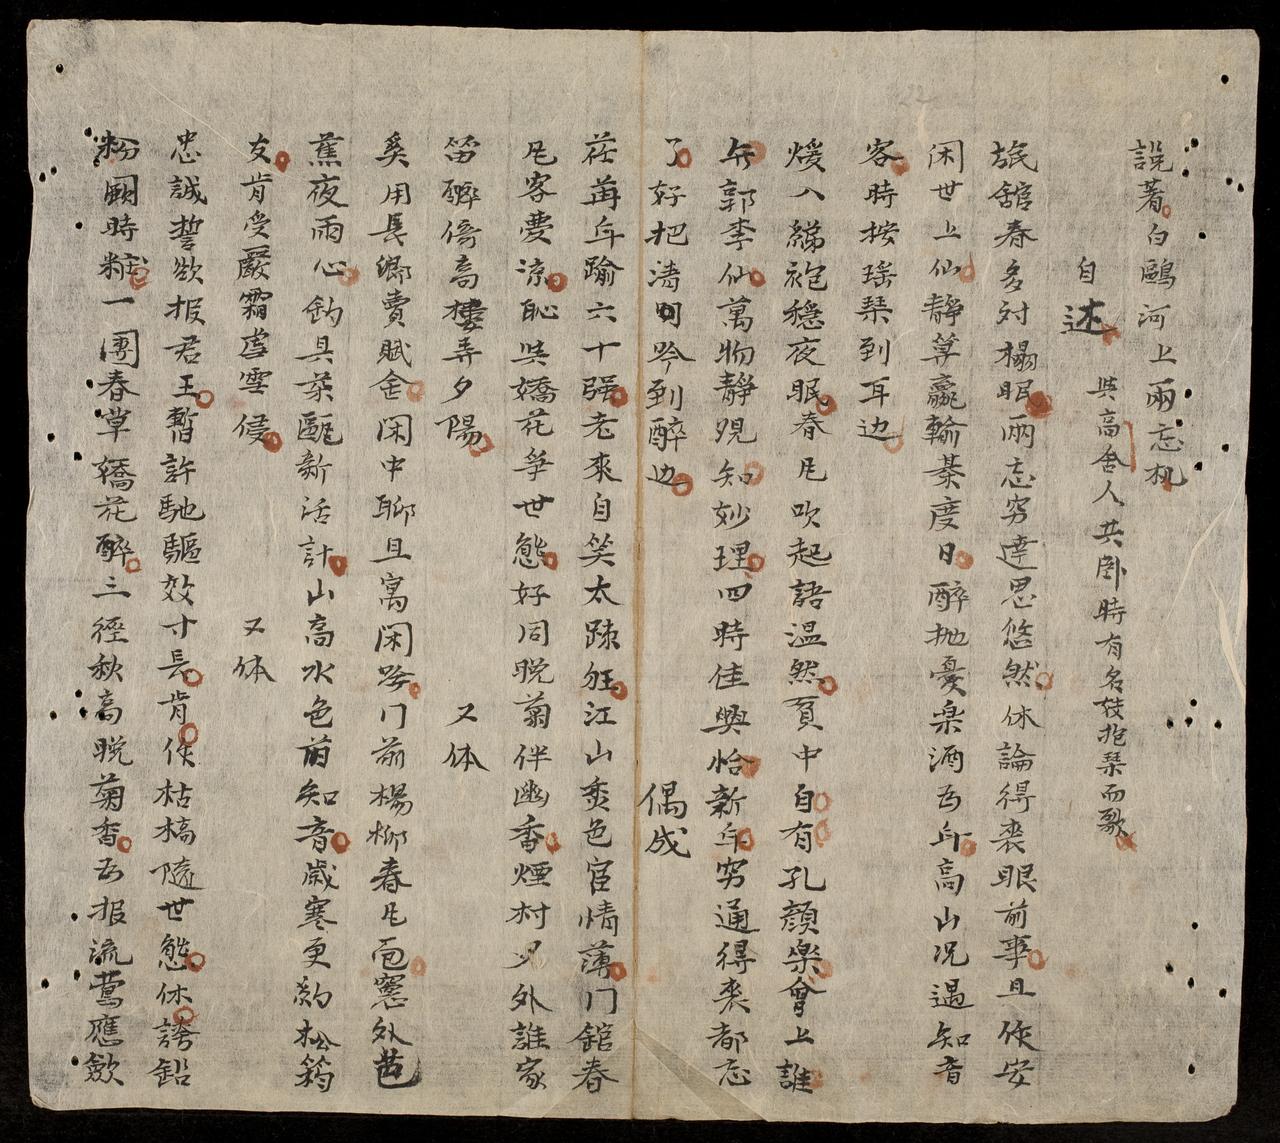 說著白鷗河上兩忘机
自述 與高舍人共卧時有名妓抱琴而歌
旅舘春多対榻眠兩忘穷達思悠然休論得丧眼前事且作安
閑世上仙靜算贏輸棊度日醉抛憂樂酒為年高山况遇知音
客時按瑶琹到耳边
煖入綈袍穩夜眠春风吹起語温然頁中自有孔顔樂會上誰
与郭李仙萬物靜覌知妙理四時佳興恰新年穷通得丧都忘
了好把清明吟到醉边 偶成
荏苒年踰六十强老来自笑太踈狂江山悉色官情薄门舘春
风客夢凉恥与嬌花爭世態好同晚菊伴幽香煙村 外誰家
笛醉倚高樓弄夕陽 又体
奚用長鄉賣賦金闲中聊且寓闲吟门前楊柳春风 窓外芭
蕉夜雨心釣具茶甌新活計山高水色旧知音歲寒更約松筠
友肯受嚴霜虐雪侵 又体
忠誠誓欲报君王暫許馳驅效寸長肯作枯槁隨世態休誇鉛
粉鬪時粧一團春草嬌花醉三徑秋高晚菊香为报流鶯應歛